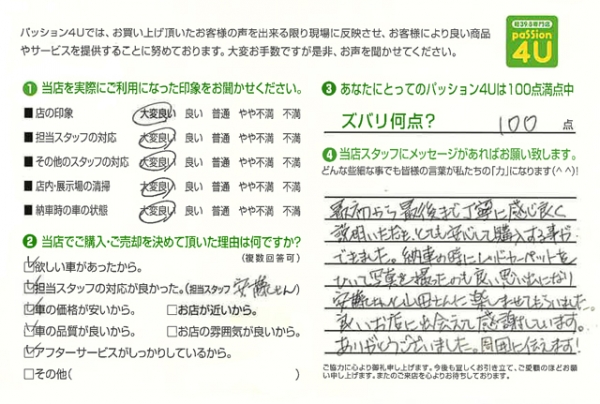 パッション4Uでは、お買い上げ頂いたお客様の声を出来る限り現場に反映させ、お客様により良い商品
やサービスを提供することに努めております。大変お手数ですが是非、お声を聞かせてください。
軽39.8専門店
passion
4U
1 当店を実際にご利用になった印象をお聞かせください。
■店の印象 大変良い 良い 普通 やや不満 不満
■担当スタッフの対応 大変良い 良い 普通 やや不満 不満
■その他のスタッフの対応 大変良い 良い 普通 やや不満 不満
■店内・展示場の清掃 大変良い 良い 普通 やや不満 不満
■納車時の車の状態 大変良い 良い 普通 やや不満 不満
2 当店でご購入・ご売却を決めて頂いた理由は何ですか?
(複数回答可)
☑欲しい車があったから。
☑担当スタッフの対応が良かった。(担当スタッフ 安藤さん)
☑車の価格が安いから。 □お店が近いから。
☑車の品質が良いから。 □お店の雰囲気が良いから。
☑アフターサービスがしっかりしているから。
□その他( )
3 あなたにとってのパッション4Uは100点満点中
ズバリ何点? 100 点
4 当店スタッフにメッセージがあればお願い致します。
どんな些細な事でも皆様の言葉が私たちの「力」になります(^^)!
最初から最後まで丁寧に感じ良く
説明いただき、とても安心して購入する事が
できました。納車の時にレッドカーペットを
ひいて写真を撮ったのも良い思い出になり
安藤さんと山田さんに楽しませてもらいました。
良いお店に出会えて感謝しています。
ありがとうございました。周囲に伝えます!
ご協力に心より御礼申し上げます。今後も宜しくお引き立て、ご愛顧のほどお願
い申し上げます。またのご来店を心よりお待ちしております。